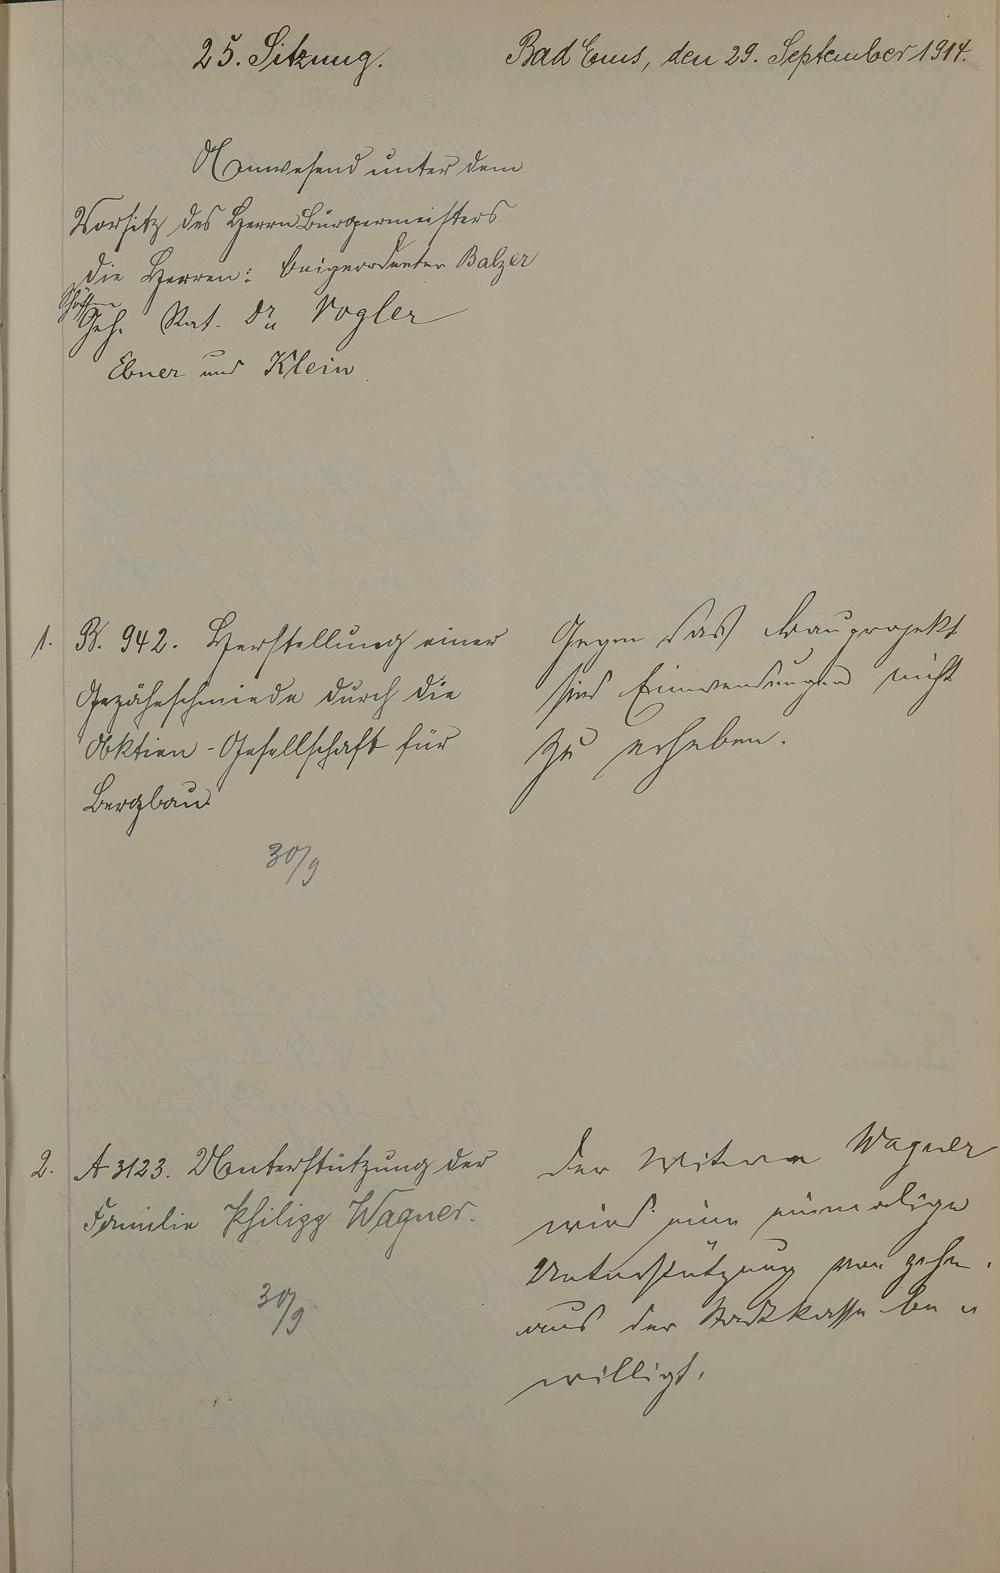 25. Sitzung.
Bad Ems, den 29. September 1914.
Anwesend unter dem
Vorsitz des Herrn Bürgermeisters
die Herren: Beigeordneter Balzer
Schöffen
Geh. Rat. Dr. Vogler
Ebner und Klein
1. B. 942. Herstellung einer
Gezäheschmiede durch die
Aktien-Gesellschaft für
Bergbau
30/9
Gegen das Bauprojekt
sind Einwendungen nicht
zu erheben.
2. A 3123. Unterstützung der
Familie Philipp Wagner.
30/9
Der Witwe Wagner
wird eine einmalige
Unterstützung von zehn
aus der Stadtkasse be"
willigt.